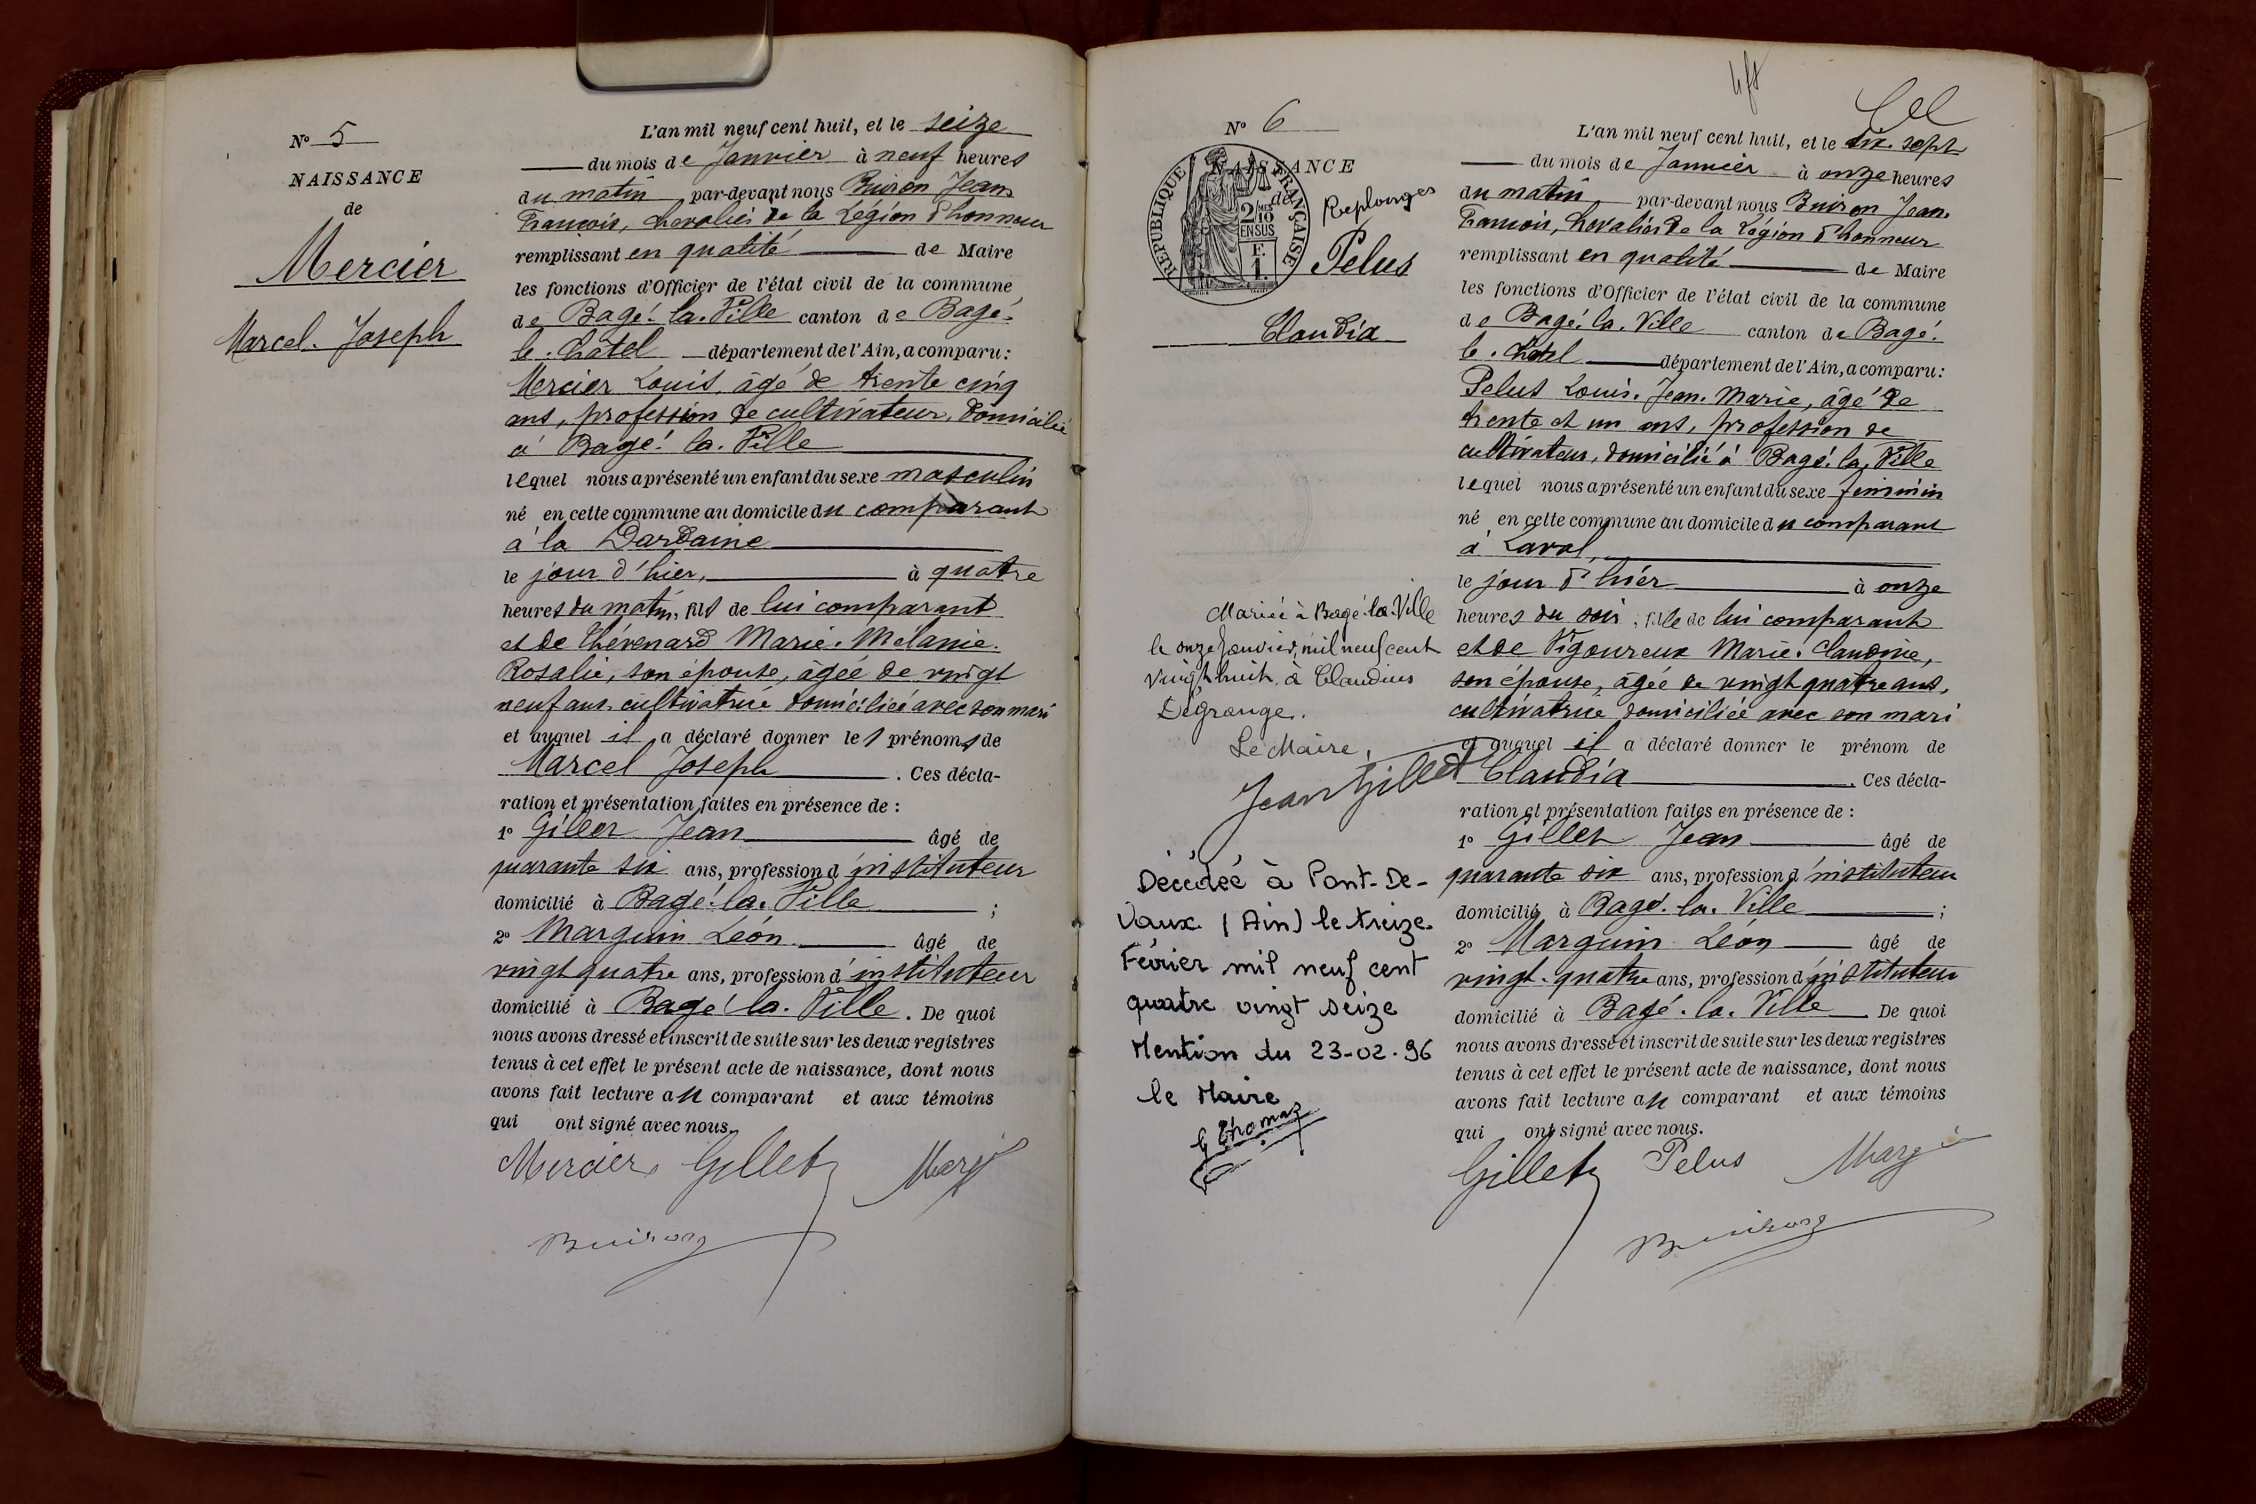 N° 5
NAISSANCE
de
Mercier
Marcel. Joseph
L'an mil neuf cent huit, et le seize
du mois de Janvier à neuf heures
du matin par-devant nous Buiron Jean
François, chevalier de la Légion d'honneur
remplissant en qualité de Maire
les fonctions d'Officier de l'état civil de la commune
de Bagé-la-Ville canton de Bagé-
le-Châtel département de l'Ain, a comparu :
Mercier Louis, âgé de trente cinq
ans, profession de cultivateur, domicilié
à Bagé-la-Ville
lequel nous a présenté un enfant du sexe masculin
né en cette commune au domicile du comparant
à la Dardaine
le jour d'hier, à quatre
heures du matin, fils de lui comparant
et de Thévenard Marie. Mélanie.
Rosalie, son épouse, âgée de vingt
neuf ans, cultivatrice domiciliée avec son mari
et auquel il a déclaré donner les prénoms de
Marcel Joseph . Ces décla-
ration et présentation faites en présence de :
1° Gillet Jean âgé de
quarante six ans, profession d'instituteur
domicilié à Bagé-la-Ville ;
2° Marguin Léon âgé de
vingt quatre ans, profession d'instituteur
domicilié à Bagé-la-Ville. De quoi
nous avons dressé et inscrit de suite sur les deux registres
tenus à cet effet le présent acte de naissance, dont nous
avons fait lecture au comparant et aux témoins
qui ont signé avec nous.
Mercier Gillet Marg
Buiron
N° 6
NAISSANCE
de
REPUBLIQUE FRANÇAISE
2/10 MES
EN SUS
F.
1.
Replonges
Pelus
Claudia
Mariée à Bagé-la-Ville
le onze Janvier mil neuf cent
vingt huit à Claudius
Degrange.
Le Maire,
Jean Gillet
Décédée à Pont-De-
Vaux (Ain) le treize
Février mil neuf cent
quatre vingt seize
Mention du 23-02-96
le Maire
G Thomaz
L'an mil neuf cent huit, et le dix sept
du mois de Janvier à onze heures
du matin par-devant nous Buiron Jean.
François, chevalier de la Légion d'honneur
remplissant en qualité de Maire
les fonctions d'Officier de l'état civil de la commune
de Bagé-la-Ville canton de Bagé-
le-Châtel département de l'Ain, a comparu :
Pelus Louis. Jean. Marie, âgé de
trente et un ans, profession de
cultivateur, domicilié à Bagé-la-Ville
lequel nous a présenté un enfant du sexe féminin
né en cette commune au domicile du comparant
à Laval,
le jour d'hier à onze
heures du soir ; fille de lui comparant
et de Vigoureux Marie. Claudine,
son épouse, âgée de vingt quatre ans,
cultivatrice domiciliée avec son mari
et auquel il a déclaré donner le prénom de
Claudia . Ces décla-
ration et présentation faites en présence de :
1° Gillet Jean âgé de
quarante six ans, profession d'instituteur
domicilié à Bagé-la-Ville ;
2° Marguin Léon âgé de
vingt-quatre ans, profession d'instituteur
domicilié à Bagé-la-Ville De quoi
nous avons dressé et inscrit de suite sur les deux registres
tenus à cet effet le présent acte de naissance, dont nous
avons fait lecture au comparant et aux témoins
qui ont signé avec nous.
Gillet Pelus Marg
Buiron